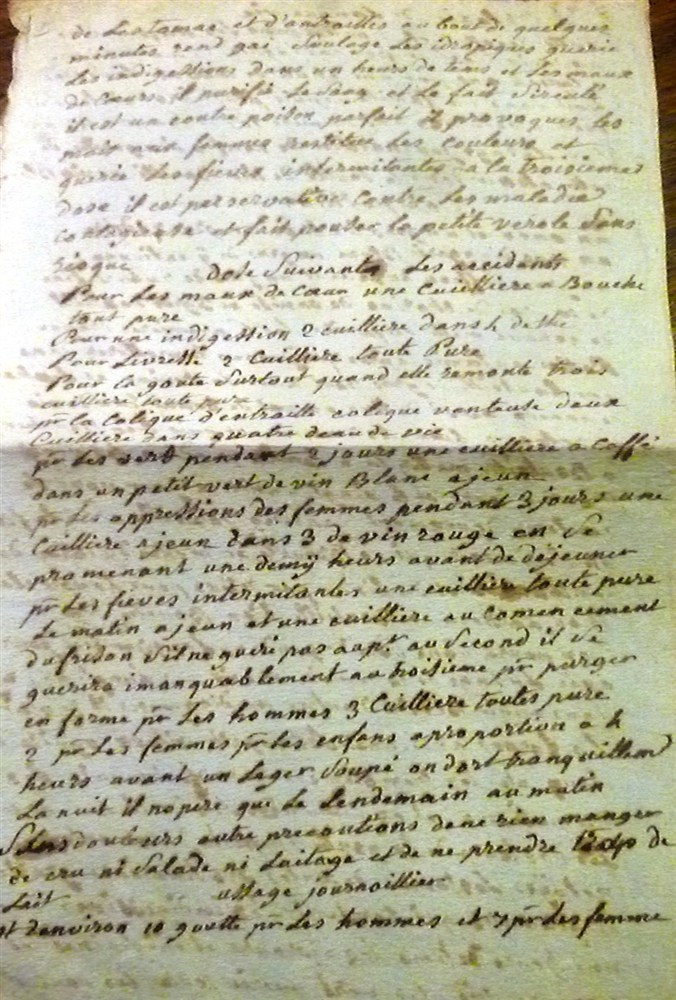 de Lestomac et d'antrailles au bout de quelques
minutes rend gai Soulage Les idropiques guerie
Les indigestions dans un heurs de tems et Les maux
de Cœurs il purifie Le Sang et Le fait Sirculé
il est un contre poison parfait il provoques les
mois aux femmes restitue Les Couleurs et
guerie Les fievres intermitantes a la troisieme
dose il est perservative Contre Les maladie
contagieuse et fait pousser la petite verole Sans
risque
dose Suivante Les accidents
Pour Les maux de Cœur une Cuilliere a Bouche
tout pure
Pour une indigestion 2 cuilliere dans de thé
Pour Livresse 2 Cuilliere toute Pure
Pour la goute Surtout quand elle remonte trois
cuilliere toute pure
pr la Colique d'entraille colique venteuse deux
Cuilliere dans quatre deau de vie
pr Les vert pendant 2 jours une cuilliere a Caffé
dans un petit vert de vin Blanc a jeun
pr Les oppressions des femmes pendant 3 jours une
Cuilliere a jeun dans 3 de vin rouge en Se
promenant une demij heurs avant de dejeuner
pr Les fieves intermitantes une cuilliere toute pure
Le matin a jeun et une cuilliere au Comencement
du frison S'il ne gueri pas au pr au Second il Se
guerira imanquablement au troisieme pr purger
en forme pr Les hommes 3 Cuilliere toutes pure
2 pr Les femmes pr Les enfans a proportion a 4
heurs avant un Leger Soupé on dort tranquillem
La nuit il nopere que Le Lendemain au matin
Sans douleurs autre precautions de ne rien manger
de cru ni Salade ni Laitage et de ne prendre de
Lait
usage journaillier
est denviron 10 goutte pr Les hommes et 7 pr Les femme